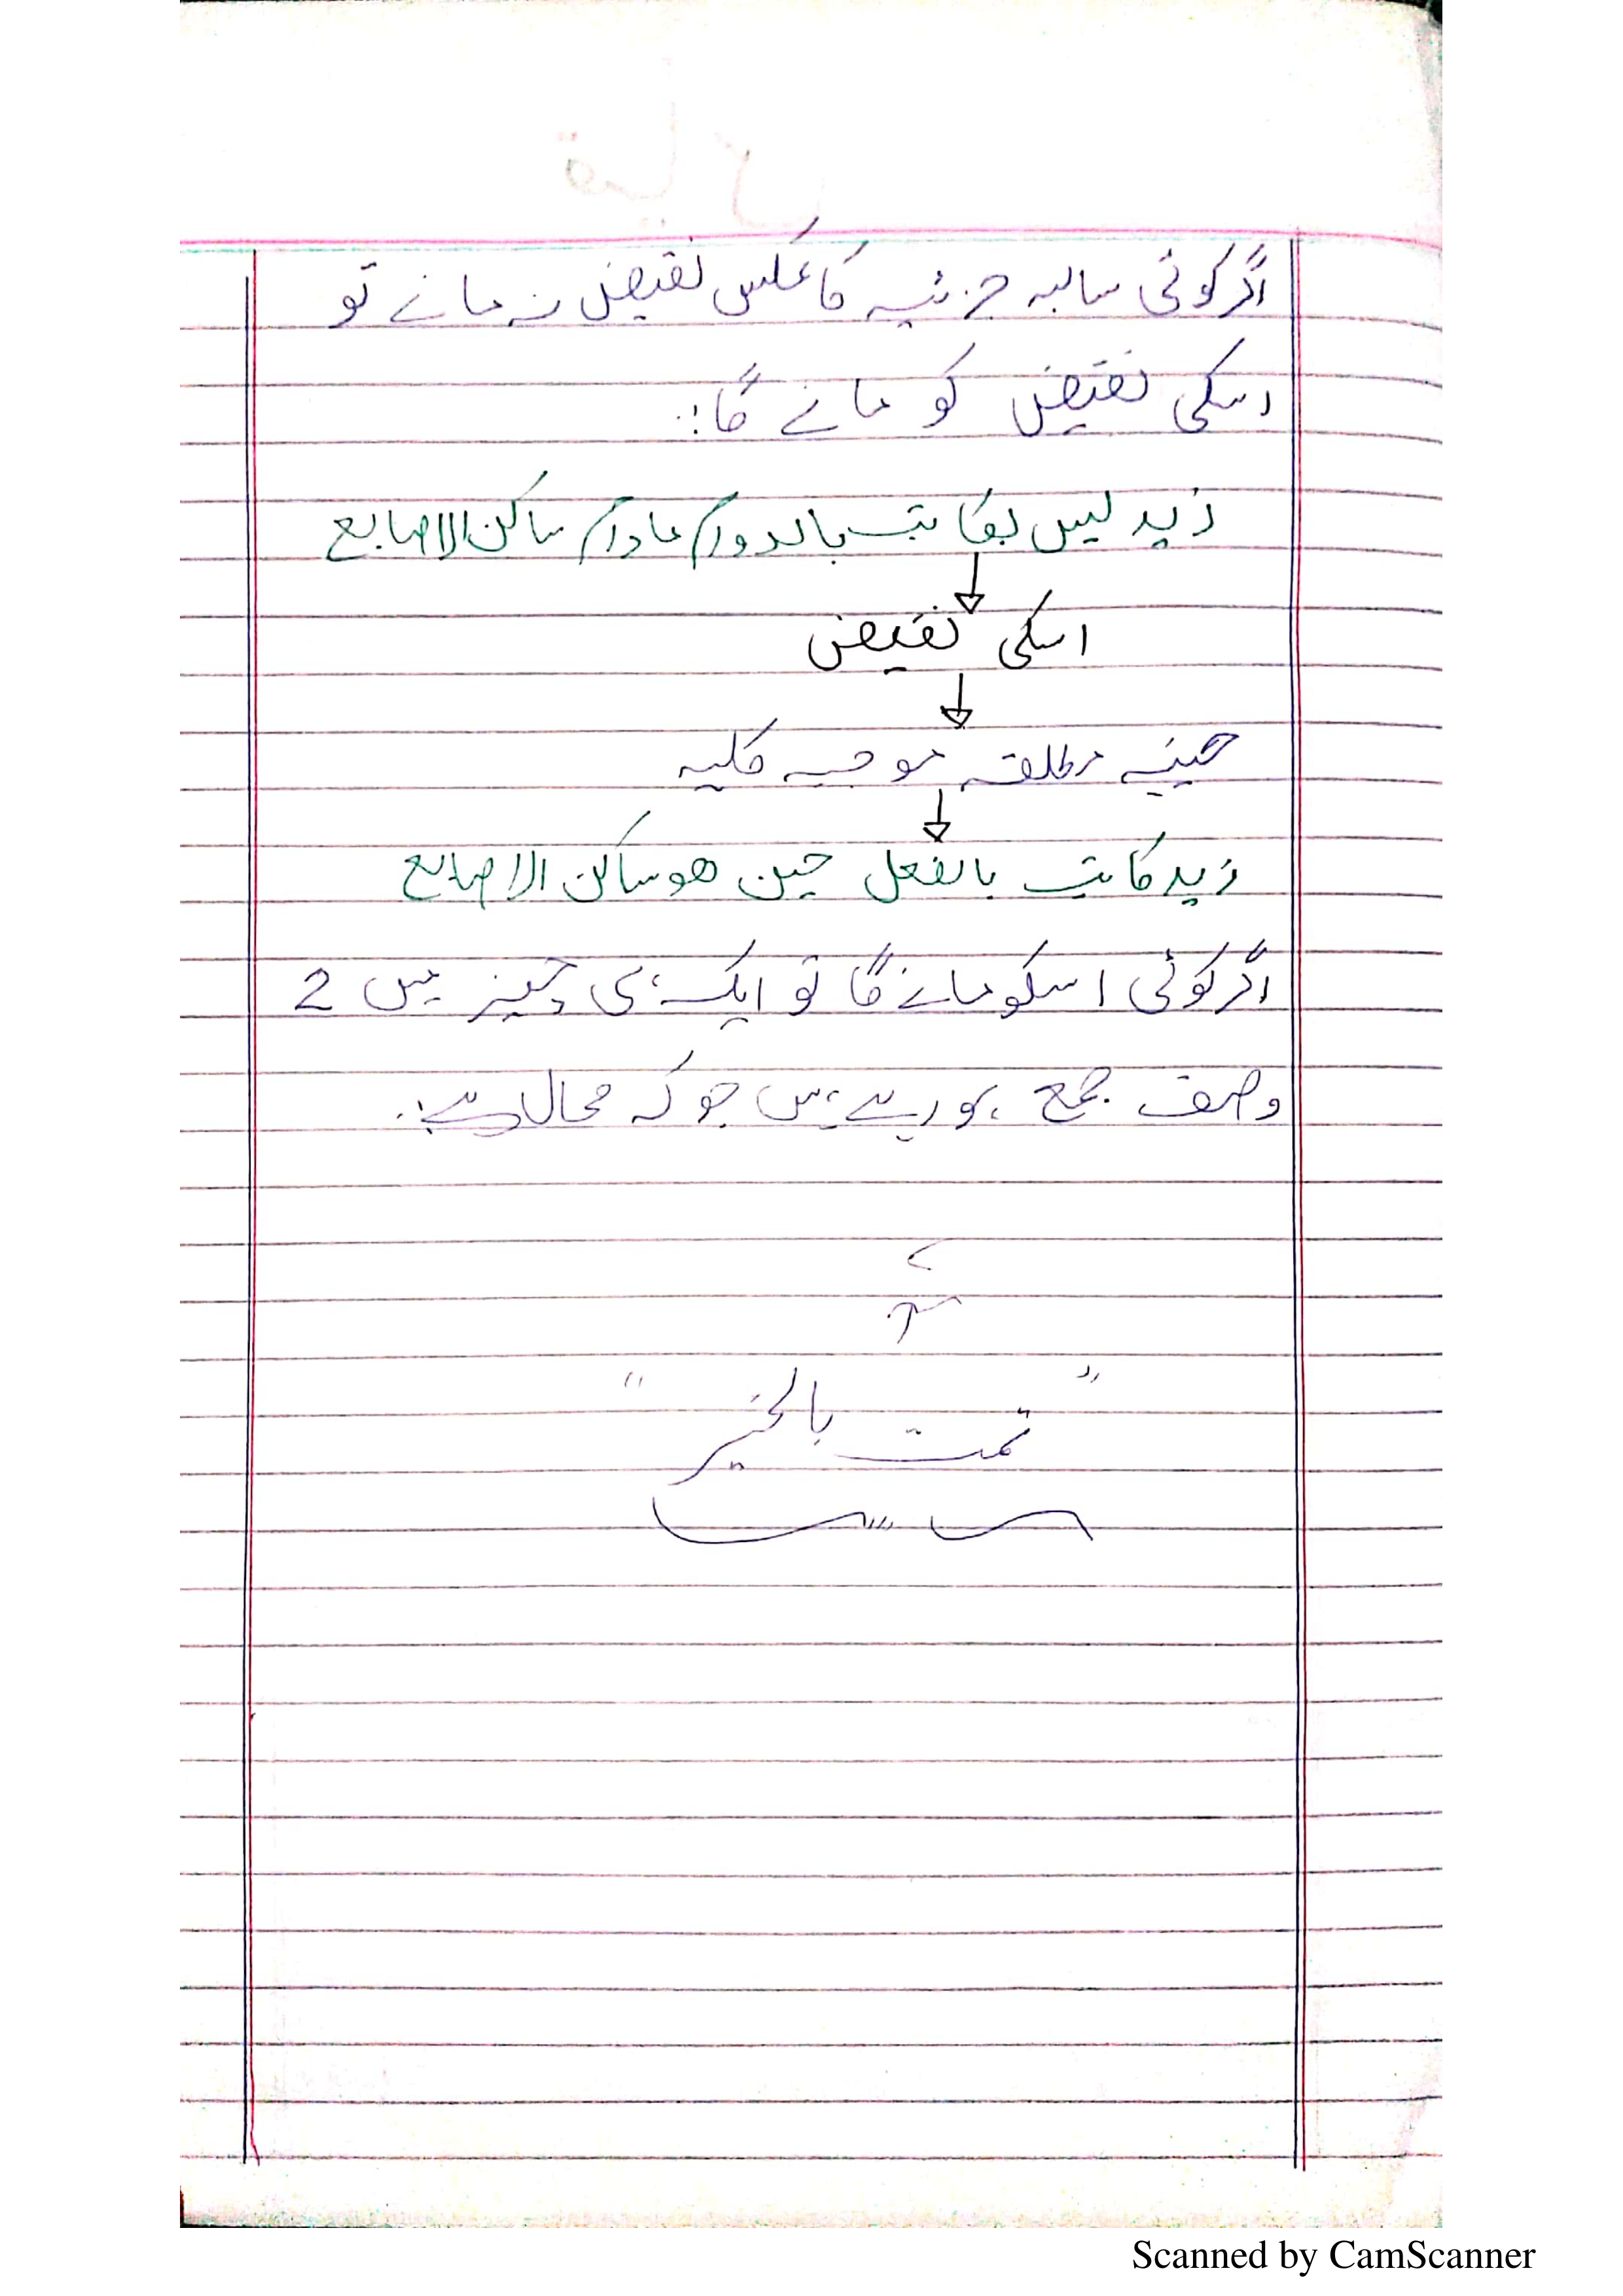 اگر کوئی سالبہ جزئیہ کا عکس نقیض نہ مانے تو
اسکی نقیض کو مانے گا:
زید لیس بکاتب بالدوام مادام ساکن الاصابع
اسکی نقیض
حینیہ مطلقہ موجبہ کلیہ
زید کاتب بالفعل حین ھو ساکن الاصابع
اگر کوئی اسکو مانے گا تو ایک ہی چیز میں 2
وصف جمع ہو رہے ہیں جو کہ محال ہے:
"تمت بالخیر"
Scanned by CamScanner